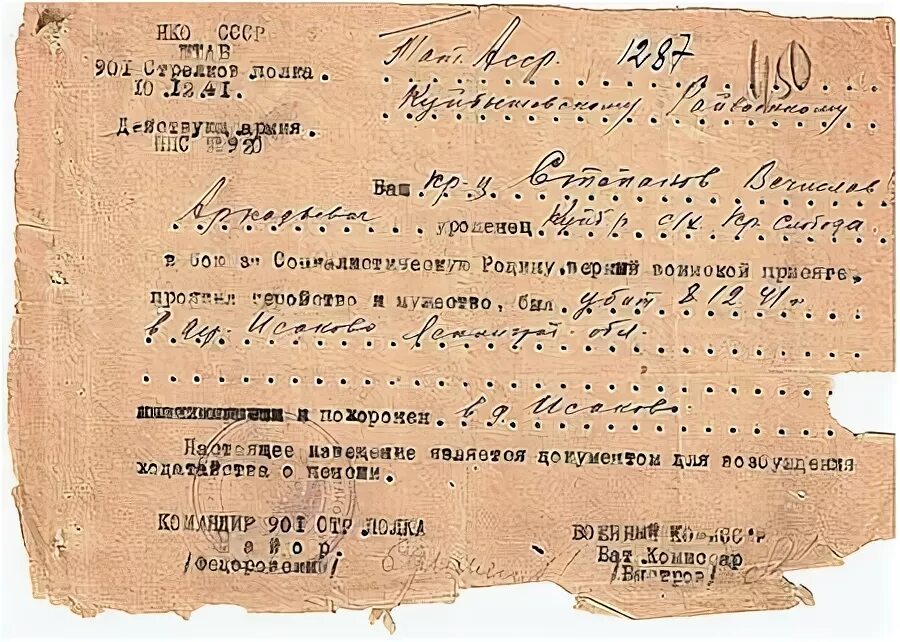 НКО СССР
ШТАБ
901 Стрелков полка.
10.12.41.
Действующ.армия.
ППС № 920
Тат. Асср. 1287
1150
Куйбышевскому Райвоенкому
Ваш кр-ц Степанов Вечислав
Аркадьевич уроженец Куйб.р. с/х. Кр. слобода
в бою за Социалистическую Родину,верный воинской присяге,
проявил геройство и мужество, был убит 8.12.41г
в дер. Исаково Ленинград. обл.
и похоронен в д. Исаково
Настоящее извещение является документом для возбуждения
ходатайства о пенсии.
КОМАНДИР 901 СТР ПОЛКА
Майор.
ВОЕННЫЙ КОМИССАР
Бат.Комиссар